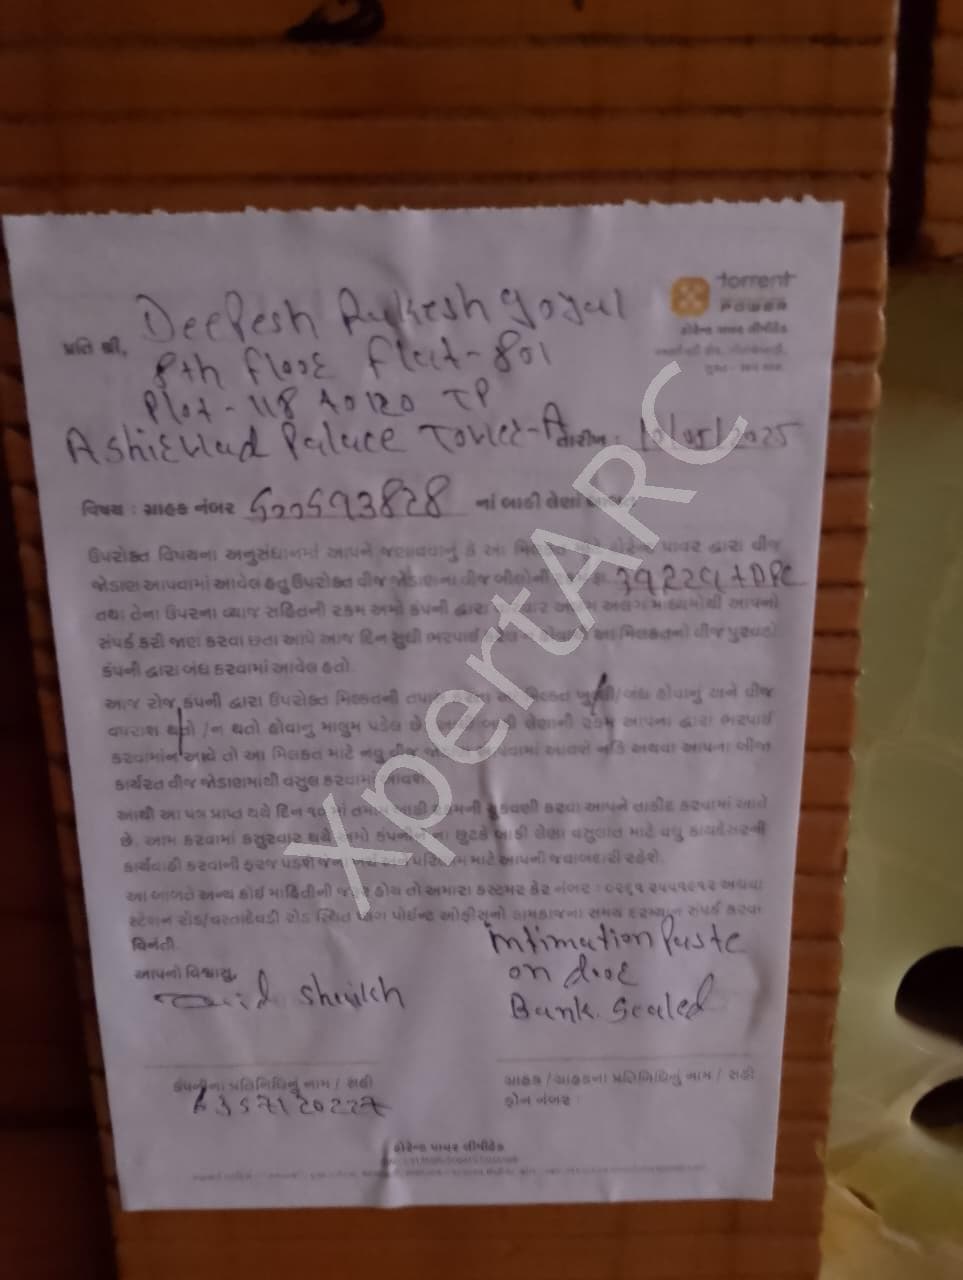 torrent
POWER
ટોરેન્ટ પાવર લીમીટેડ
પ્રતિ શ્રી, Deepesh Rakesh goyal
8th Floor Flat-801
Plot-118 to 120 TP
Ashirwad Palace Tower-A તારીખ : /05/2025
વિષય : ગ્રાહક નંબર 500593828 નાં બાકી લેણાં
ઉપરોક્ત વિષયના અનુસંધાનમાં આપને જણાવવાનું કે આ ટોરેન્ટ પાવર દ્વારા વીજ
જોડાણ આપવામાં આવેલ હતુ ઉપરોક્ત વીજ જોડાણના વીજ બીલોની + DPC
તથા તેના ઉપરના વ્યાજ સહિતની રકમ અમો કંપની દ્વારા અલગ માધ્યમોથી આપનો
સંપર્ક કરી જાણ કરવા છતા આપે આજ દિન સુધી ભરપાઈ આ મિલકતનો વીજ પુરવઠો
કંપની દ્વારા બંધ કરવામાં આવેલ હતો.
આજ રોજ કંપની દ્વારા ઉપરોક્ત મિલકતની /બંધ હોવાનું અને વીજ
વપરાશ થતો /ન થતો હોવાનુ માલુમ પડેલ છે. બાકી લેણાંની રકમ આપના દ્વારા ભરપાઈ
કરવામાંન આવે તો આ મિલકત માટે નવુ વીજ આપવામાં આવશે નહિ અથવા આપના બીજા
કાર્યરત વીજ જોડાણમાંથી વસુલ કરવામાં આવશે.
આથી આ પત્ર પ્રાપ્ત થયે દિન ૧૦માં બાકી રકમની ચુકવણી કરવા આપને તાકીદ કરવામાં આવે
છે. આમ કરવામાં કસુરવાર થયે અમો કંપનીને ના છુટકે બાકી લેણા વસુલાત માટે વધુ કાયદેસરની
કાર્યવાહી કરવાની ફરજ પડશે માટે આપની જવાબદારી રહેશે.
આ બાબતે અન્ય કોઈ માહિતીની જરૂર હોય તો અમારા કસ્ટમર કેર નંબર : ૦૨૬૧ ૨૫૫૧૯૧૨ અથવા
સ્ટેશન રોડ/વસ્તાદેવડી રોડ સ્થિત પ્લગ પોઈન્ટ ઓફીસનો કામકાજના સમય દરમ્યાન સંપર્ક કરવા
વિનંતી.
intimation Paste
on door
Bank. Sealed
આપનો વિશ્વાસુ,
Sheikh
કંપનીના પ્રતિનિધિનું નામ / સહી
6357120227
ગ્રાહક / ગ્રાહકના પ્રતિનિધિનું નામ / સહી
ફોન નંબર :
ટોરેન્ટ પાવર લીમીટેડ
XpertARC